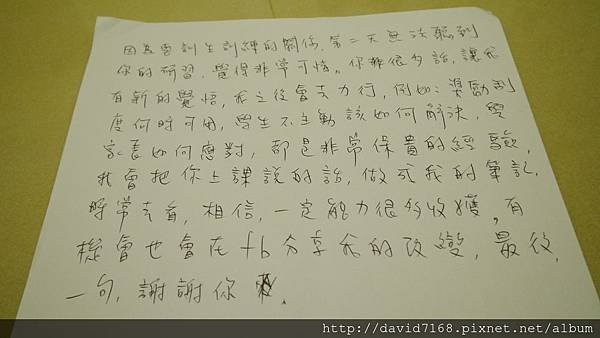 因為要訓生訓練的關係,第二天無法聽到
你的研習,覺得非常可惜。你那很多話,讓我
有新的覺悟,我之後會去力行,例如:獎勵制
度何時可用,學生不主動該如何解決,與
家長如何應對,都是非常保貴的經驗,
我會把你上課說的話,做成我的筆記,
時常去看,相信,一定能力很多收獲。有
機會也會在fb分享我的改變,最後,
一句,謝謝你
http://david7168.pixnet.net/album